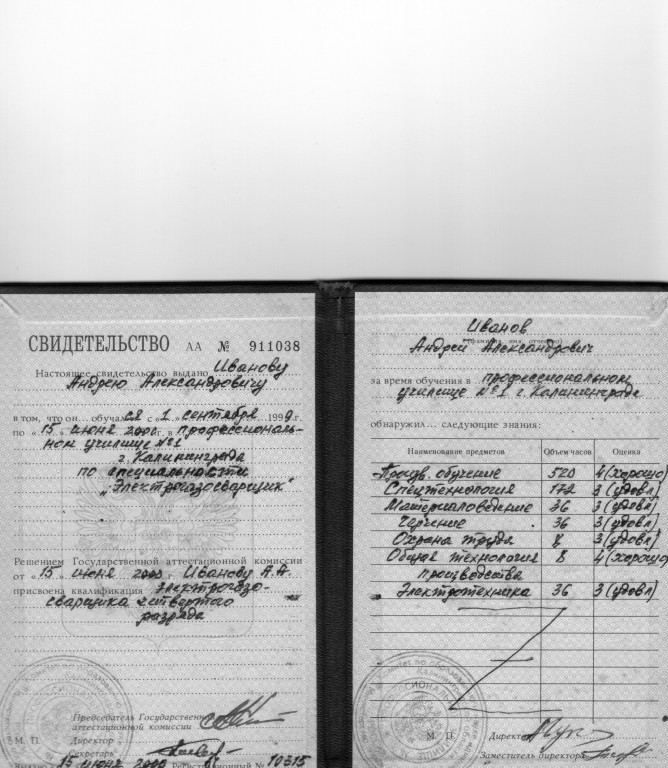 СВИДЕТЕЛЬСТВО АА № 911038
Настоящее свидетельство выдано Иванову
Андрею Александровичу
в том, что он... обучался с «1 сентября 1999 г.
по «15» июня 2000 г. в профессиональ-
ном училище №1
г. Калининграда
по специальности
„Электрогазосварщик"
Решением Государственной аттестационной комиссии
от «15» июня 2000 г. Иванову А.А.
присвоена квалификация электрогазо-
сварщика четвертого
разряда
Председатель Государственной
аттестационной комиссии
М. П. Директор
Секретарь
15 июня 2000 Регистрационный № 10315
Иванов
фамилия, имя, отчество
Андрей Александрович
за время обучения в профессиональном
училище №1 г. Калининграда
обнаружил... следующие знания:
Наименование предметов Объем часов Оценка
Произв. обучение 520 4 (хорошо)
Спецтехнология 172 3 (удовл)
Материаловедение 36 3 (удовл)
Черчение 36 3 (удовл)
Охрана труда 8 3 (удовл)
Общая технология 8 4 (хорошо
производства
Электротехника 36 3 (удовл)
М. П. Директор
Заместитель директора